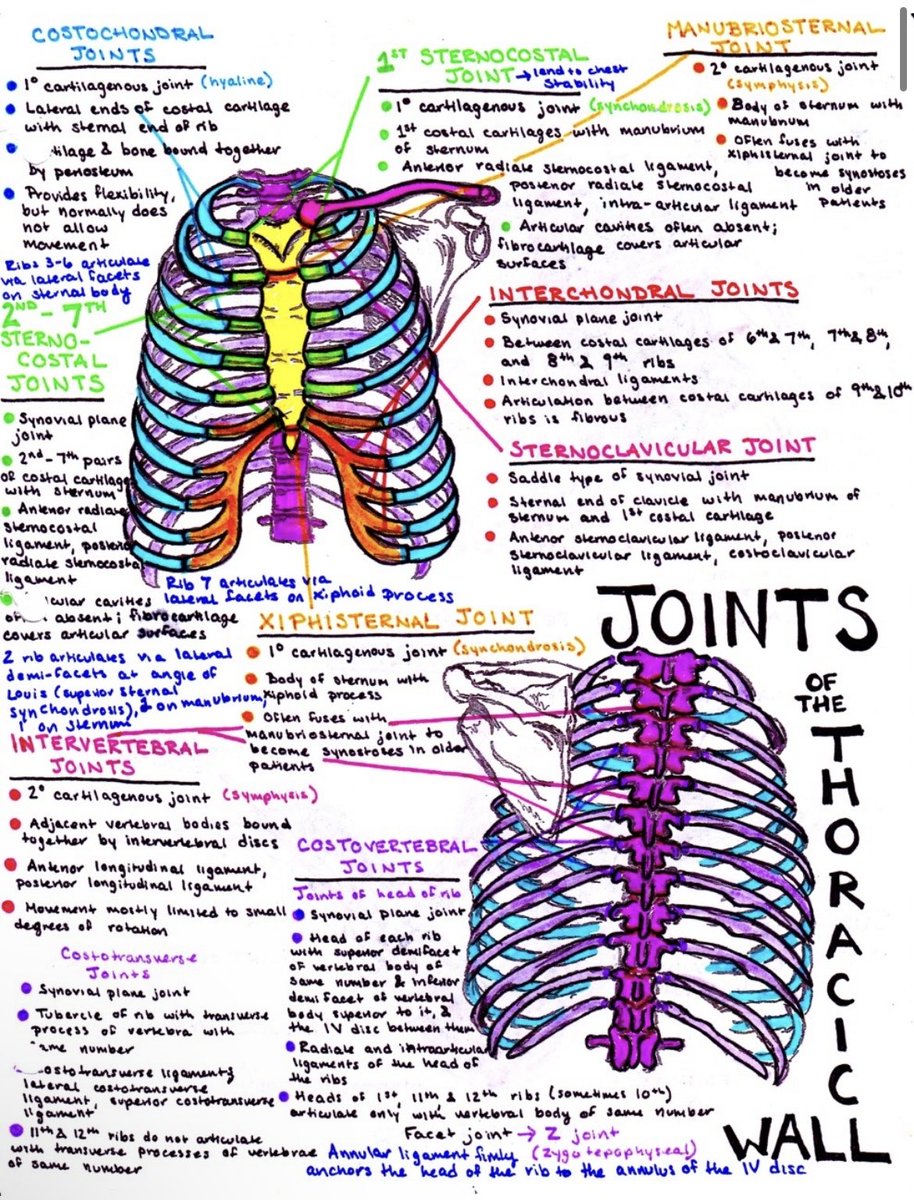 COSTOCHONDRAL
JOINTS
1° cartilagenous joint (hyaline)
Lateral ends of costal cartilage
with sternal end of rib
tilage & bone bound together
by periosteum
Provides flexibility,
but normally does
not allow
movement
Ribs 3-6 articulate
via lateral facets
on sternal body
1ST STERNOCOSTAL
JOINT → lend to chest
stability
1° cartilagenous joint (synchondrosis)
1st costal cartilages with manubrium
of sternum
Anterior radiate sternocostal ligament,
posterior radiate sternocostal
ligament, intra-articular ligament
Articular cavities often absent;
fibrocartilage covers articular
surfaces
MANUBRIOSTERNAL
JOINT
2° cartilagenous joint
(symphysis)
Body of sternum with
manubrium
Often fuses with
xiphisternal joint to
become synostoses
in older
patients
2ND-7TH
STERNO-
COSTAL
JOINTS
Synovial plane
joint
2nd-7th pairs
of costal cartilage
with sternum
Anterior radiate
sternocostal
ligament, posterior
radiate sternocostal
ligament
cular cavities
absent; fibrocartilage
covers articular surfaces
2 rib articulates via lateral
demi-facets at angle of
Louis (superior sternal
synchondrosis), 1 on manubrium,
1 on sternum
INTERCHONDRAL JOINTS
Synovial plane joint
Between costal cartilages of 6th & 7th, 7th & 8th,
and 8th & 9th ribs
Interchondral ligaments
Articulation between costal cartilages of 9th & 10th
ribs is fibrous
STERNOCLAVICULAR JOINT
Saddle type of synovial joint
Sternal end of clavicle with manubrium of
sternum and 1st costal cartilage
Anterior sternoclavicular ligament, posterior
sternoclavicular ligament, costoclavicular
ligament
Rib 7 articulates via
lateral facets on xiphoid process
XIPHISTERNAL JOINT
1° cartilagenous joint (synchondrosis)
Body of sternum with
xiphoid process
Often fuses with
manubriosternal joint to
become synostoses in older
patients
JOINTS
OF
THE
THORACIC
WALL
INTERVERTEBRAL
JOINTS
2° cartilagenous joint (symphysis)
Adjacent vertebral bodies bound
together by intervertebral discs
Anterior longitudinal ligament,
posterior longitudinal ligament
Movement mostly limited to small
degrees of rotation
Costotransverse
Joints
Synovial plane joint
Tubercle of rib with transverse
process of vertebra with
ame number
ostotransverse ligaments
lateral costotransverse
ligament, superior costotransverse
ligament
11th & 12th ribs do not articulate
with transverse processes of vertebrae
of same number
COSTOVERTEBRAL
JOINTS
Joints of head of rib
Synovial plane joint
Head of each rib
with superior demifacet
of vertebral body of
same number & inferior
demi facet of vertebral
body superior to it, &
the IV disc between them
Radiate and intraarticular
ligaments of the head of
the ribs
Heads of 1st, 11th & 12th ribs (sometimes 10th)
articulate only with vertebral body of same number
Facet joint → Z joint
(zygotepaphyseal)
Annular ligament firmly
anchors the head of the rib to the annulus of the IV disc